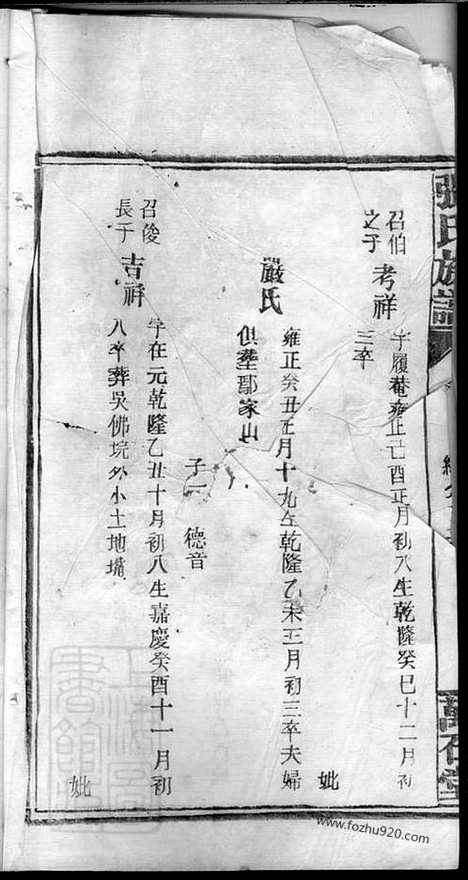 張氏族譜
召伯之子
考祥
字履菴雍正己酉正月初八生乾隆癸巳十二月初
三卒
妣
嚴氏
雍正癸丑正月十九生乾隆乙未三月初三卒夫婦
俱塟鄢家山
子一 德音
召俊長子
吉祥
字在元乾隆乙丑十月初八生嘉慶癸酉十一月初
八卒葬吳佛垸外小土地壪
妣
www.fozhu920.com